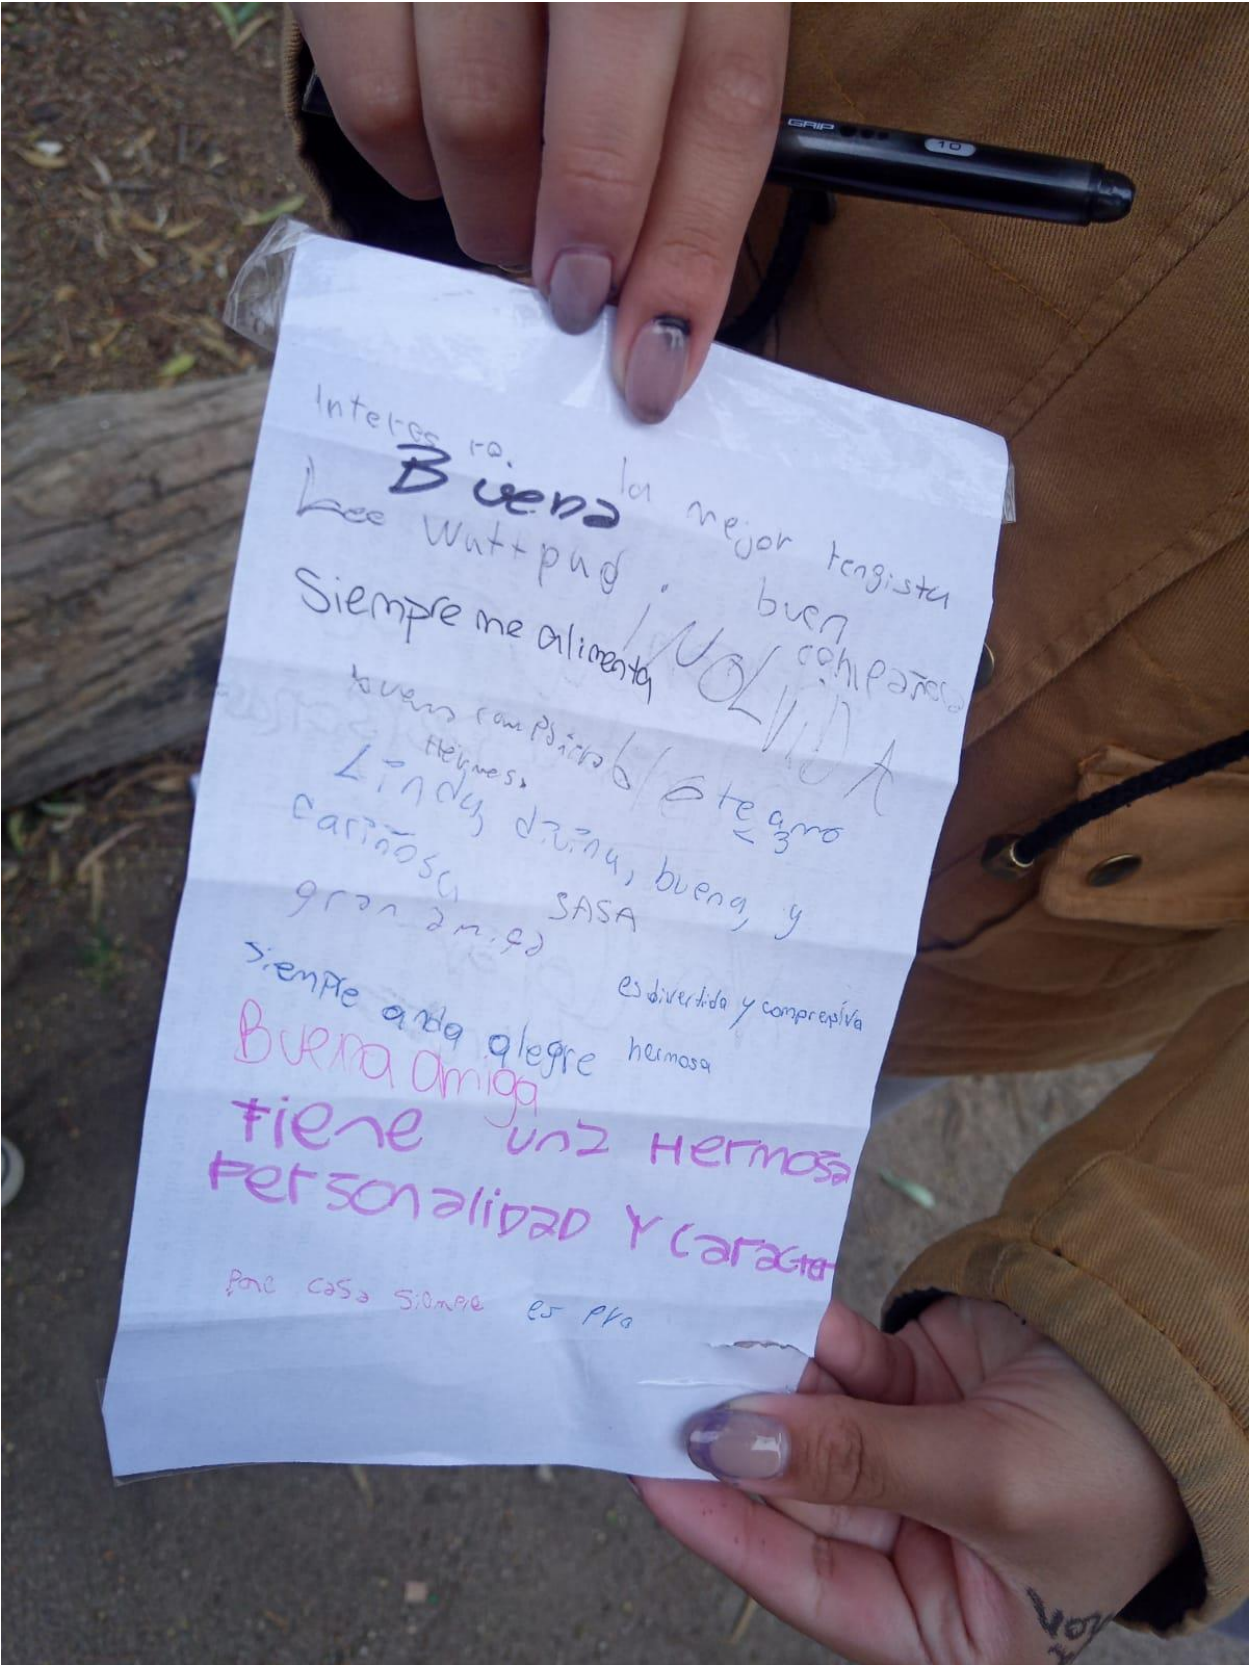 GRIP
10
Interes ra.
Buena
la mejor tengista
Lee Wattpad
buen compañera
INOLVIDA
Siempre me alimenta
buena compañera
Hermosa
ble te amo
<3
Linda, divina, buena, y
cariñosa
SASA
gran amiga
es divertida y comprensiva
siempre anda alegre
hermosa
Buena amiga
tiene una Hermosa
Personalidad Y caracter
Pone casa siempre es pro